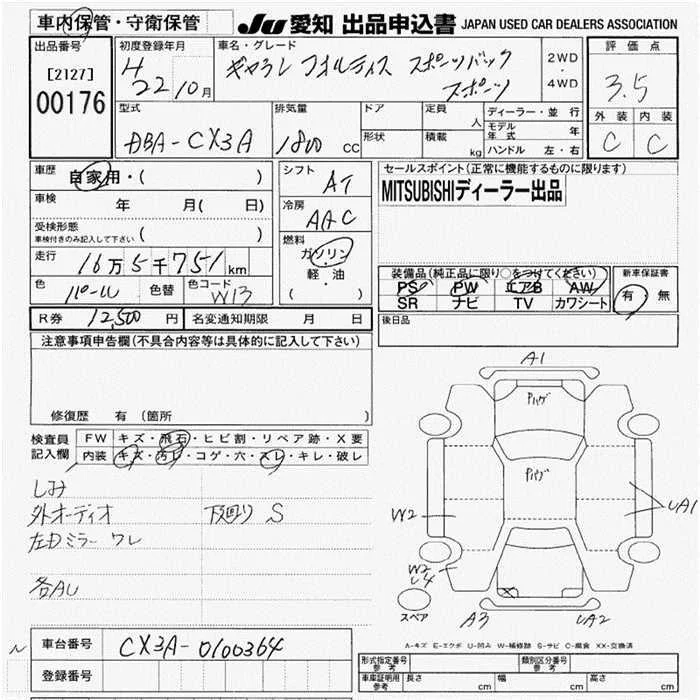 車内保管・守衛保管
JU 愛知 出品申込書 JAPAN USED CAR DEALERS ASSOCIATION
出品番号
[2127]
00176
初度登録年月
H 22 10月
車名・グレード
ギャラン フォルティス スポーツバック
スポーツ
2WD
・
4WD
評価点
3.5
外装 内装
C C
型式
DBA-CX3A
排気量
1800 cc
ドア
形状
定員
人
積載
kg
ディーラー・並行
モデル年式 年
ハンドル 左・右
車歴
自家用・( )
車検
年 月( 日)
受検形態
車検付きのみ記入して下さい ( )
走行
16万5千751km
色
パール
色替
色コード
W13
シフト
AT
冷房
AAC
燃料
ガソリン
・
軽・油
( )
セールスポイント(正常に機能するものに限ります)
MITSUBISHIディーラー出品
装備品(純正品に限り○をつけてください)
PS PW エアB AW
SR ナビ TV カワシート
新車保証書
有・無
R券 12,500円
名変通知期限 月 日
後日品
注意事項申告欄(不具合内容等は具体的に記入して下さい)
修復歴 有(箇所 )
検査員
記入欄
FW キズ・飛石・ヒビ割・リペア跡・X要
内装 キズ・汚レ・コゲ・穴・スレ・キレ・破レ
しみ
外オーディオ
下廻り S
左Dミラー ワレ
各AU
A1
Pハゲ
Pハゲ
W2
UA1
W2
U4
A3
UA2
スペア
A-キズ E-エクボ U-凹み W-補修跡 S-サビ C-腐食 XX-交換済
車台番号
CX3A-0100364
登録番号
型式指定番号
参考
類別区分番号
参考
車庫証明用
参考
長さ cm
幅 cm
高さ cm